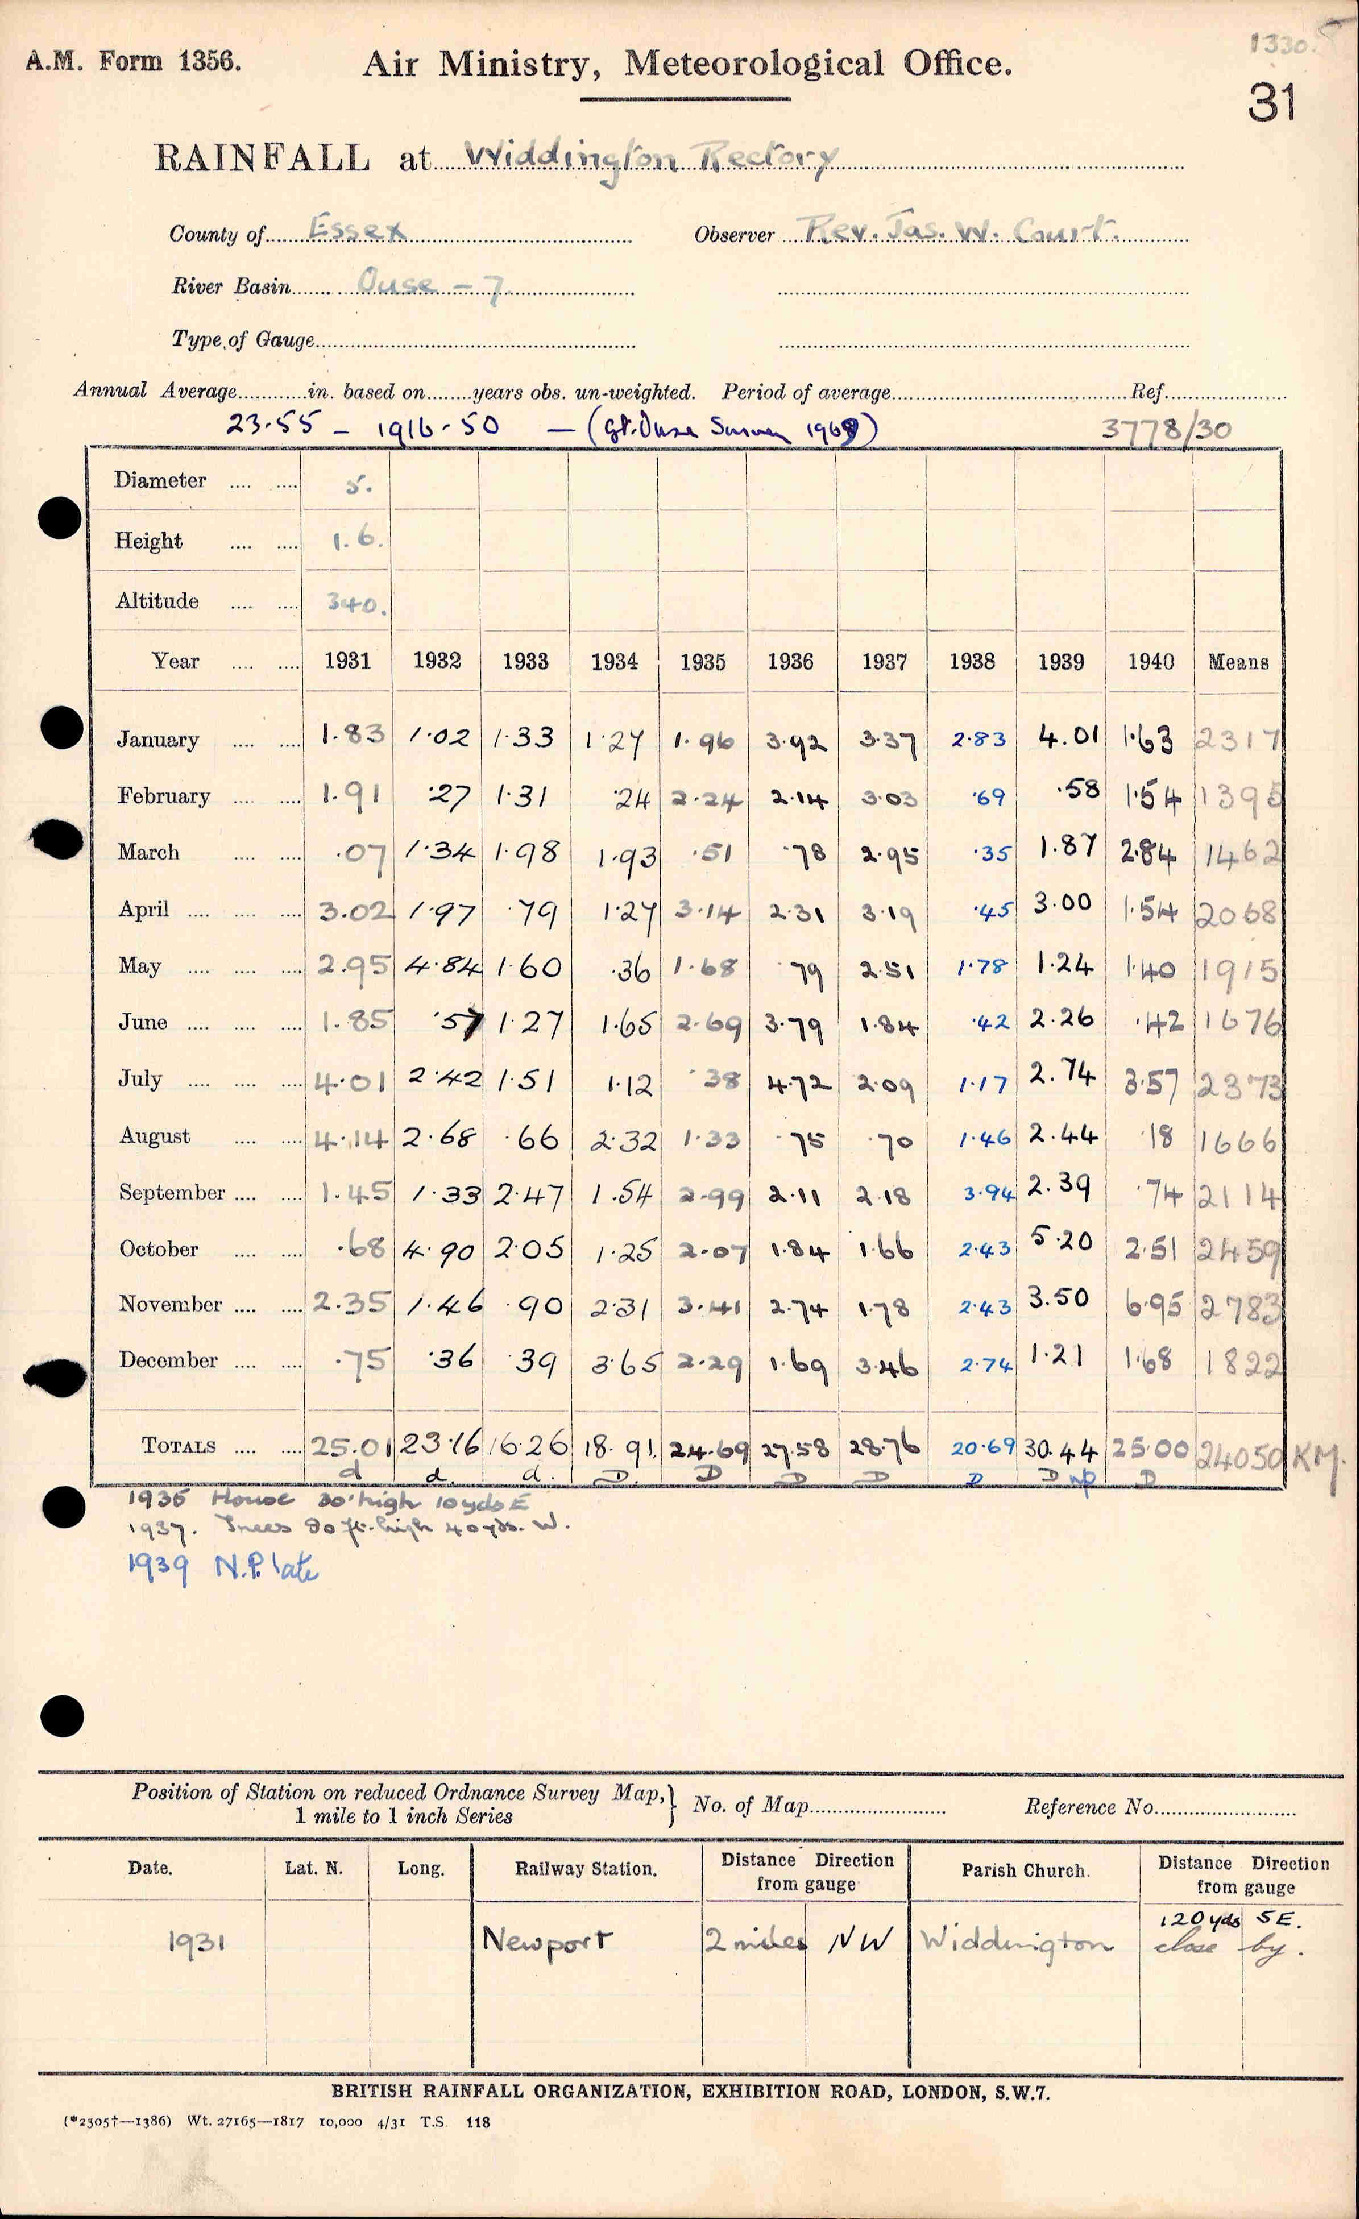 1330.
A.M. Form 1356.
Air Ministry, Meteorological Office.
31
RAINFALL at Widdington Rectory
County of Essex Observer Rev. Jas. W. Court.
River Basin Ouse - 7
Type of Gauge
Annual Average in. based on years obs. un-weighted. Period of average Ref.
23.55 - 1916-50 - (Gt. Ouse Survey 1969) 3778/30
Diameter 5.
Height 1.6.
Altitude 340.
Year 1931 1932 1933 1934 1935 1936 1937 1938 1939 1940 Means
January 1.83 1.02 1.33 1.27 1.96 3.92 3.37 2.83 4.01 1.63 2317
February 1.91 .27 1.31 .24 2.24 2.14 3.03 .69 .58 1.54 1395
March .07 1.34 1.98 1.93 .51 .78 2.95 .35 1.87 2.84 1462
April 3.02 1.97 .79 1.27 3.14 2.31 3.19 .45 3.00 1.54 2068
May 2.95 4.84 1.60 .36 1.68 .79 2.51 1.78 1.24 1.40 1915
June 1.85 .57 1.27 1.65 2.69 3.79 1.84 .42 2.26 .42 1676
July 4.01 2.42 1.51 1.12 .38 4.72 2.09 1.17 2.74 3.57 2373
August 4.14 2.68 .66 2.32 1.33 .75 .70 1.46 2.44 .18 1666
September 1.45 1.33 2.47 1.54 2.99 2.11 2.18 3.94 2.39 .74 2114
October .68 4.90 2.05 1.25 2.07 1.84 1.66 2.43 5.20 2.51 2459
November 2.35 1.46 .90 2.31 3.41 2.74 1.78 2.43 3.50 6.95 2783
December .75 .36 .39 3.65 2.29 1.69 3.46 2.74 1.21 1.68 1822
TOTALS 25.01 23.16 16.26 18.91 24.69 27.58 28.76 20.69 30.44 25.00 24050 KM.
d d. d. D. D D D D D NP D
1935 House 30' high 10 yds E
1937. Trees 80 ft. high 40 yds. W.
1939 N.P. late
Position of Station on reduced Ordnance Survey Map, } No. of Map Reference No.
1 mile to 1 inch Series
Date. Lat. N. Long. Railway Station. Distance Direction from gauge Parish Church. Distance Direction from gauge
120 yds SE.
1931 Newport 2 miles NW Widdington close by.
BRITISH RAINFALL ORGANIZATION, EXHIBITION ROAD, LONDON, S.W.7.
(*2305†—1386) Wt. 27165—1817 10,000 4/31 T.S. 118